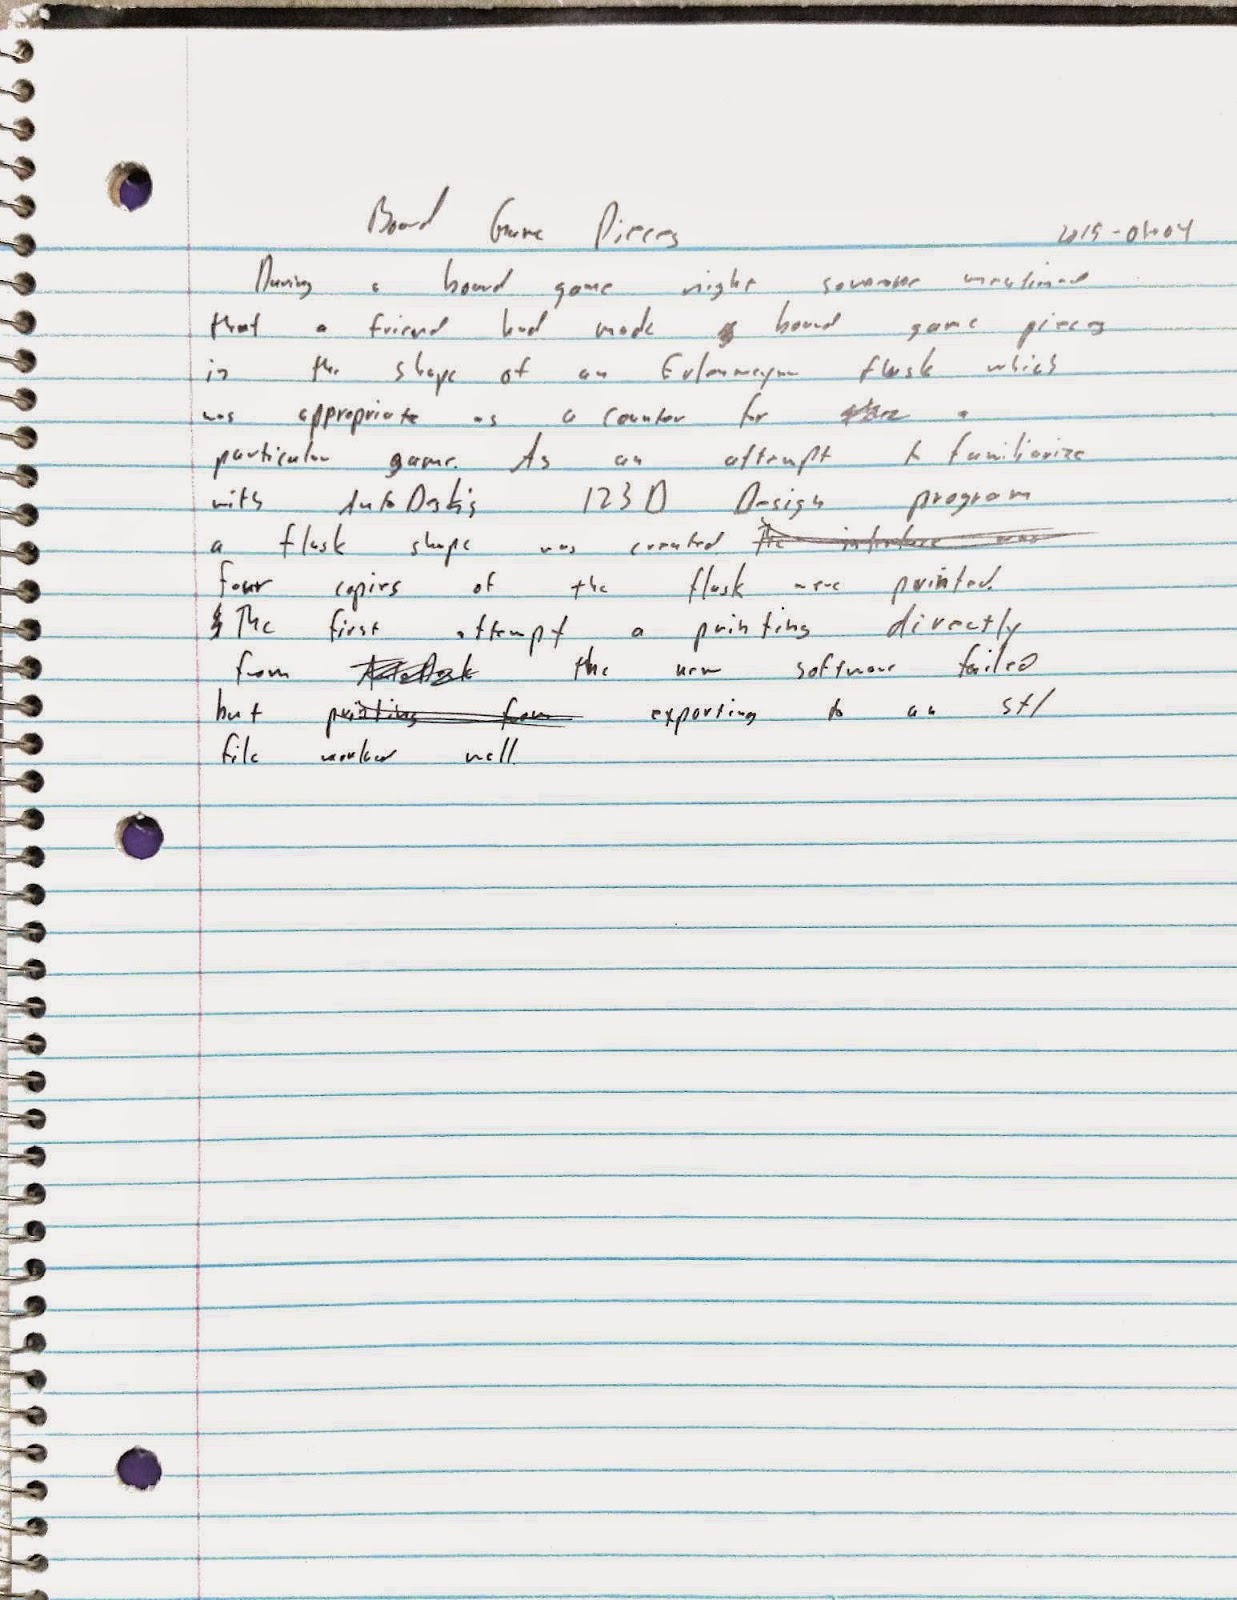 Board Game Pieces
During a board game night someone mentioned
that a friend had made board game pieces
in the shape of an Erlenmeyer flask which
was appropriate as a counter for a
particular game. As an attempt to familiarize
with AutoDesk's 123D Design program
a flask shape was created. The interface was
four copies of the flask were printed.
The first attempt a printing directly
from the new software failed
but printing from exporting to an stl
file worked well